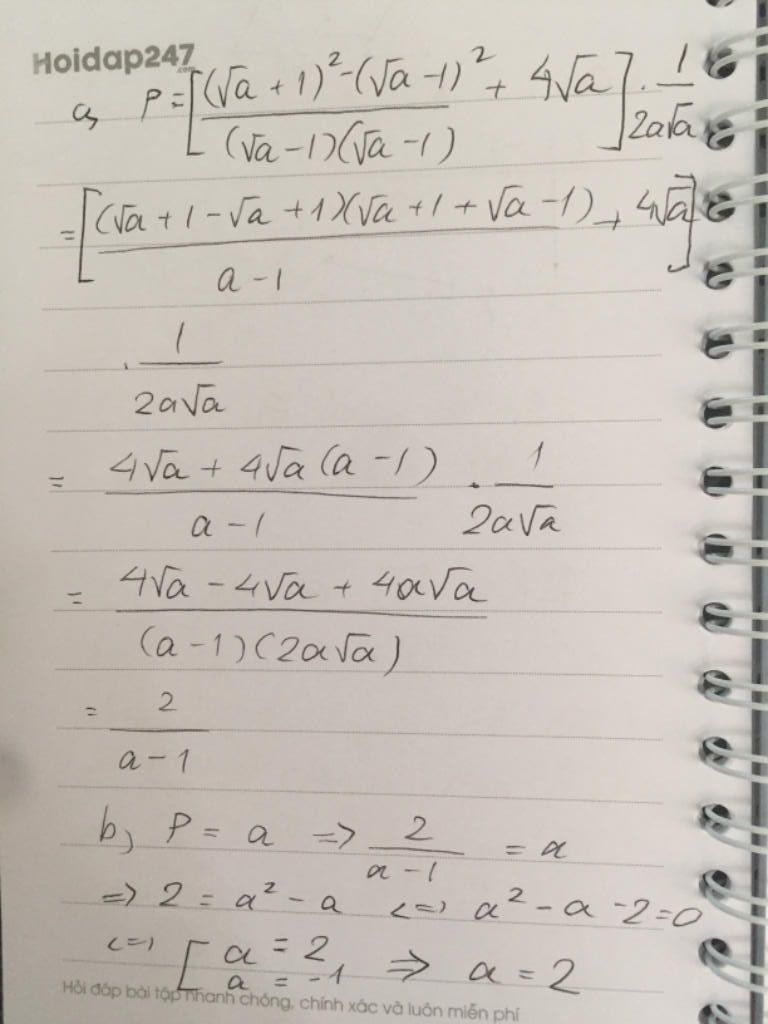 Hoidap247
.com
a, P = [((√a + 1)² - (√a - 1)²)/((√a - 1)(√a - 1)) + 4√a] . 1/(2a√a)
= [((√a + 1 - √a + 1)(√a + 1 + √a - 1))/(a - 1) + 4√a]
. 1/(2a√a)
= (4√a + 4√a (a - 1))/(a - 1) . 1/(2a√a)
= (4√a - 4√a + 4a√a)/((a - 1)(2a√a))
= 2/(a - 1)
b, P = a => 2/(a - 1) = a
=> 2 = a² - a <=> a² - a - 2 = 0
<=> [a = 2, a = -1 => a = 2
Hỏi đáp bài tập nhanh chóng, chính xác và luôn miễn phí